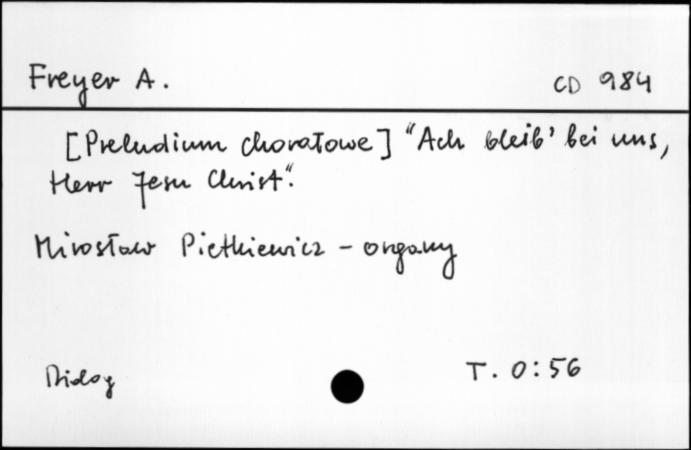 Freyer A.
CD 984
[Preludium chorałowe] "Ach bleib' bei uns,
Herr Jesu Christ".
Mirosław Pietkiewicz - organy
T. 0:56